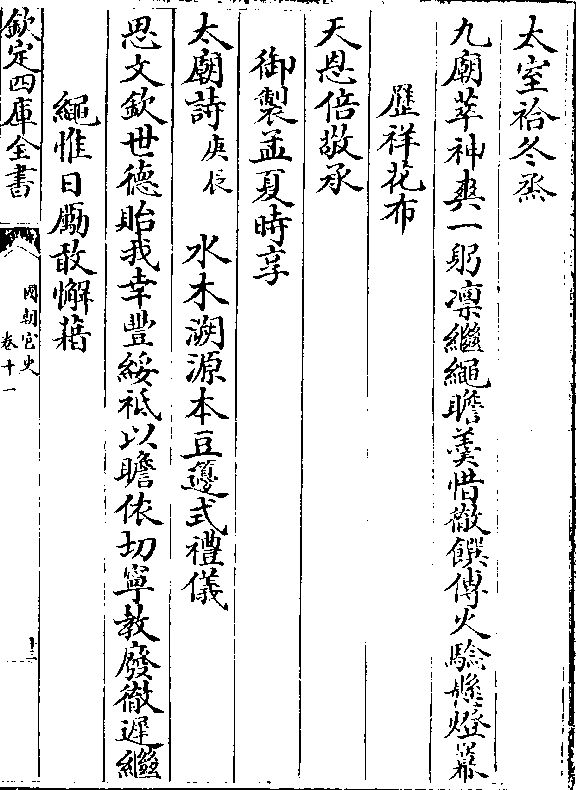 太室祫冬烝
九廟萃神爽一躬凜繼繩瞻羹惜徹饌傳火驗懸燈冪
歷祥花布
天恩倍敬承
御製孟夏時享
太廟詩庚辰 水木溯源本豆籩式禮儀
思文欽世德貽我幸豐綏祗以瞻依切寧教廢徹遲繼
繩惟日勵敢懈藉
欽定四庫全書
國朝宮史
卷十一
十三